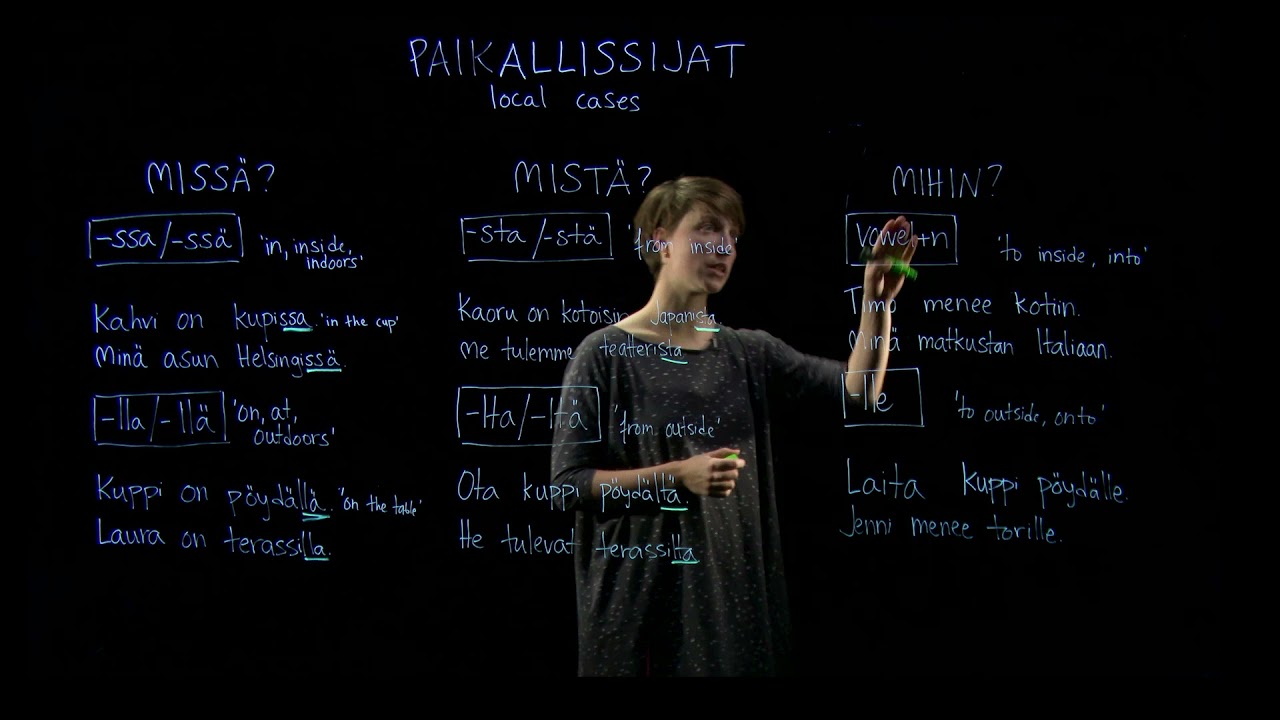 PAIKALLISSIJAT
local cases
MISSÄ?
-ssa/-ssä 'in, inside,
indoors'
Kahvi on kupissa. 'in the cup'
Minä asun Helsingissä.
-lla/-llä 'on, at,
outdoors'
Kuppi on pöydällä. 'on the table'
Laura on terassilla.
MISTÄ?
-sta/-stä 'from inside'
Kaoru on kotoisin Japanista.
Me tulemme teatterista
-lta/-ltä 'from outside'
Ota kuppi pöydältä.
He tulevat terassilta
MIHIN?
vowel+n 'to inside, into'
Timo menee kotiin.
Minä matkustan Italiaan.
-lle 'to outside, onto'
Laita kuppi pöydälle.
Jenni menee torille.